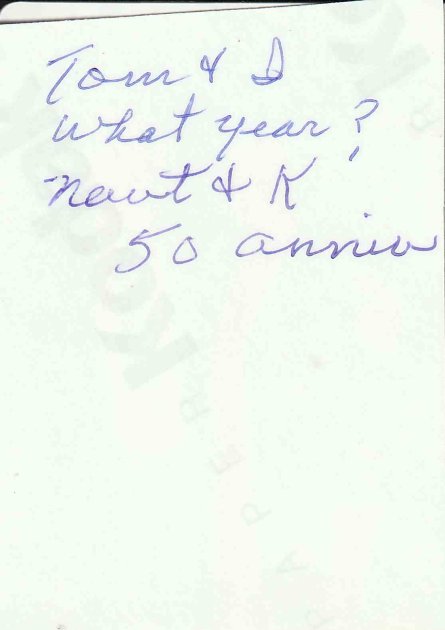 Tom & D
What year?
Newt & K
50 anniv
K
P A P E R